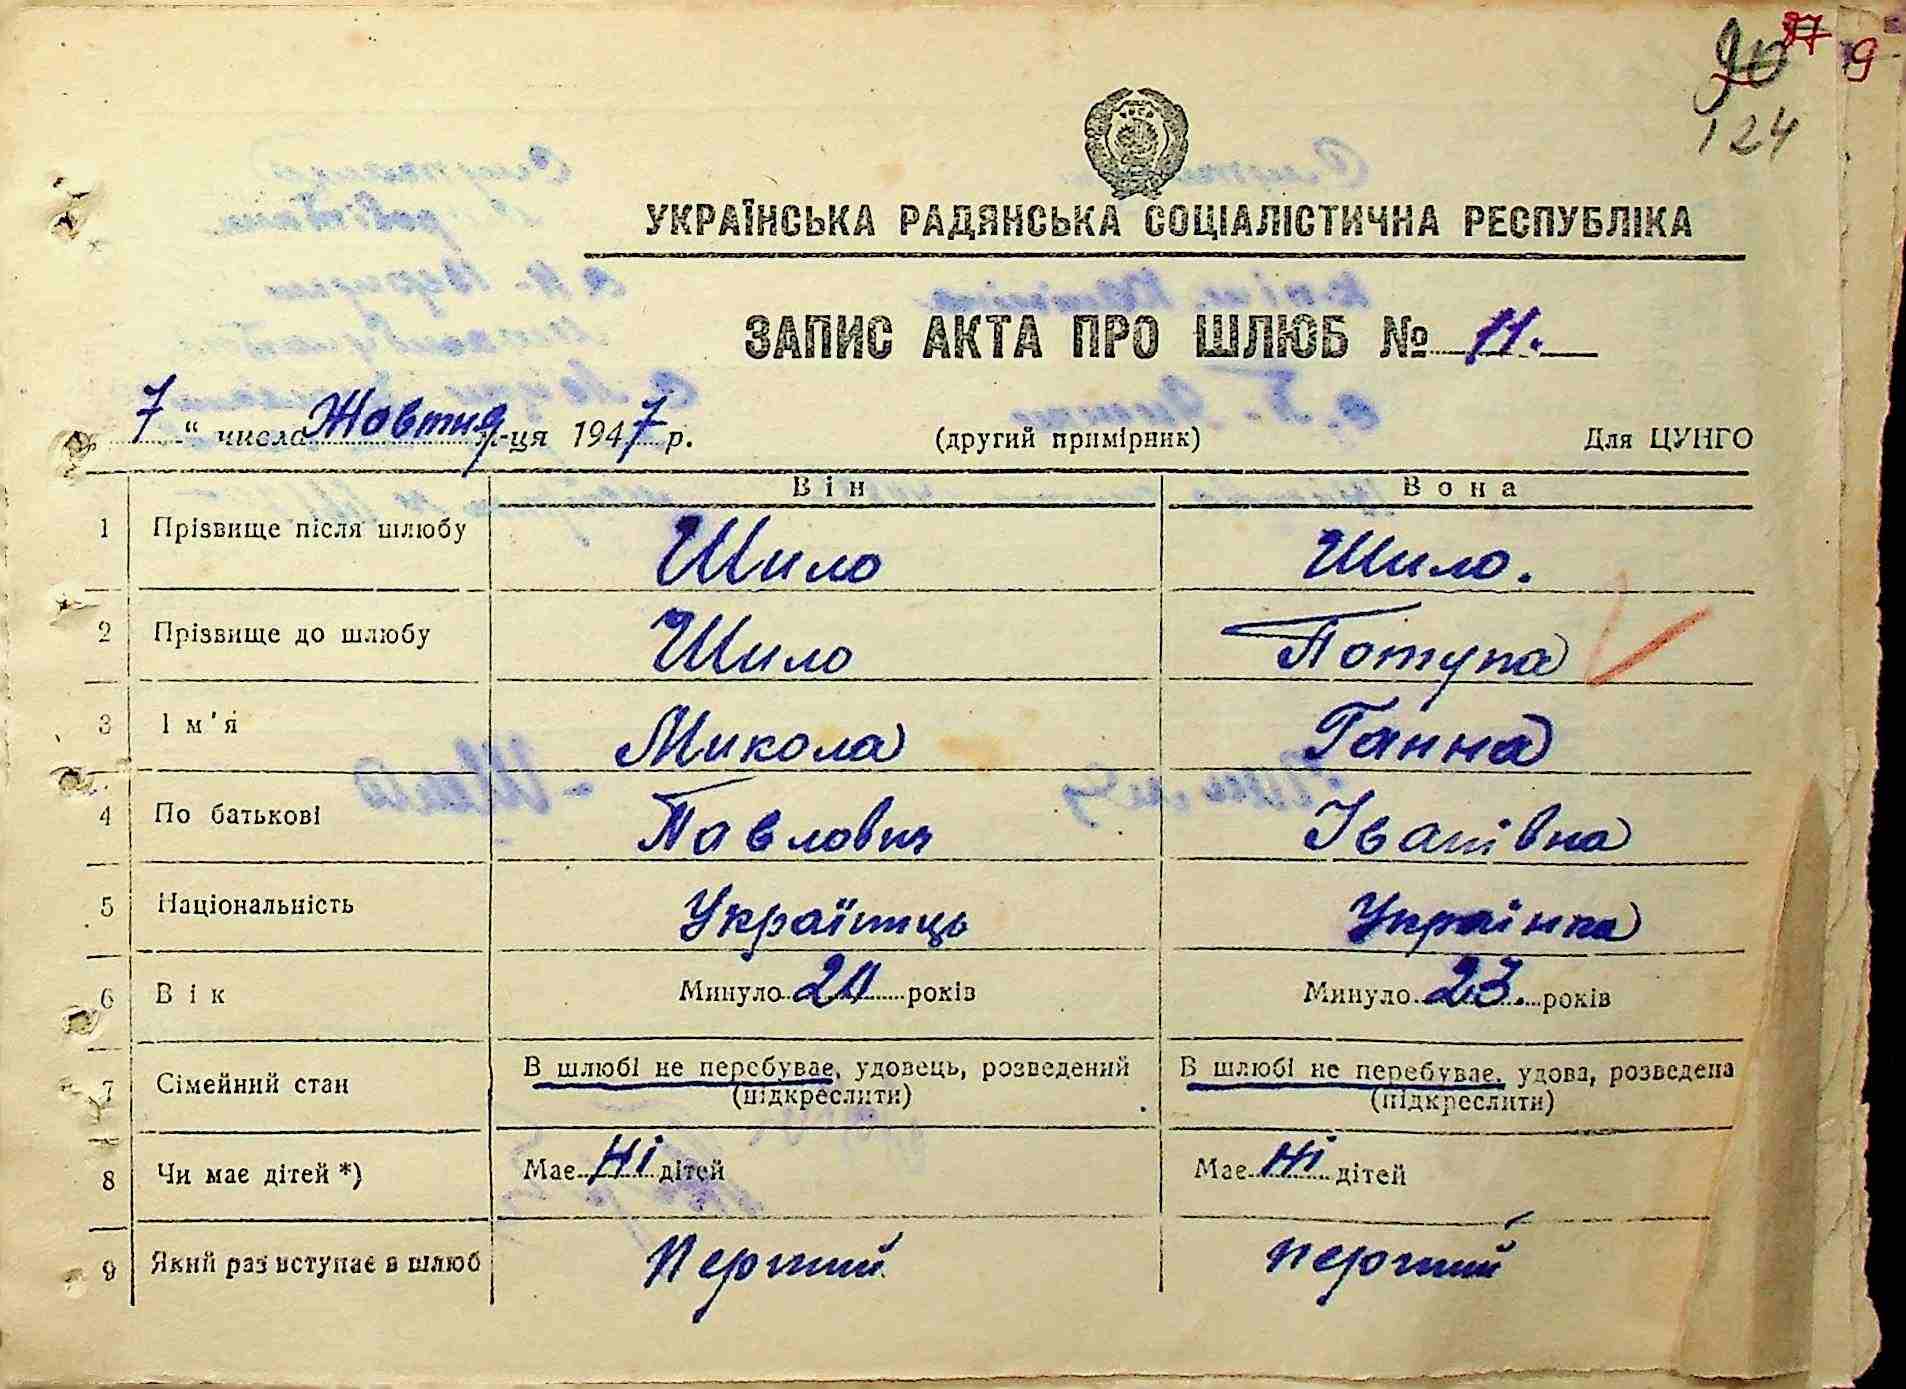 124
9
УКРАЇНСЬКА РАДЯНСЬКА СОЦІАЛІСТИЧНА РЕСПУБЛІКА
ЗАПИС АКТА ПРО ШЛЮБ № 11.
7 " числа Жовтня р-ця 1947 р. (другий примірник) Для ЦУНГО
Він Вона
1 Прізвище після шлюбу Шило Шило.
2 Прізвище до шлюбу Шило Потупа
3 Ім'я Микола Ганна
4 По батькові Павлович Іванівна
5 Національність Українць Українка
6 Вік Минуло років Минуло 23. років
7 Сімейний стан В шлюбі не перебуває, удовець, розведений В шлюбі не перебуває, удова, розведена
(підкреслити) (підкреслити)
8 Чи має дітей *) Має ні дітей Має ні дітей
9 Який раз вступає в шлюб Перший перший